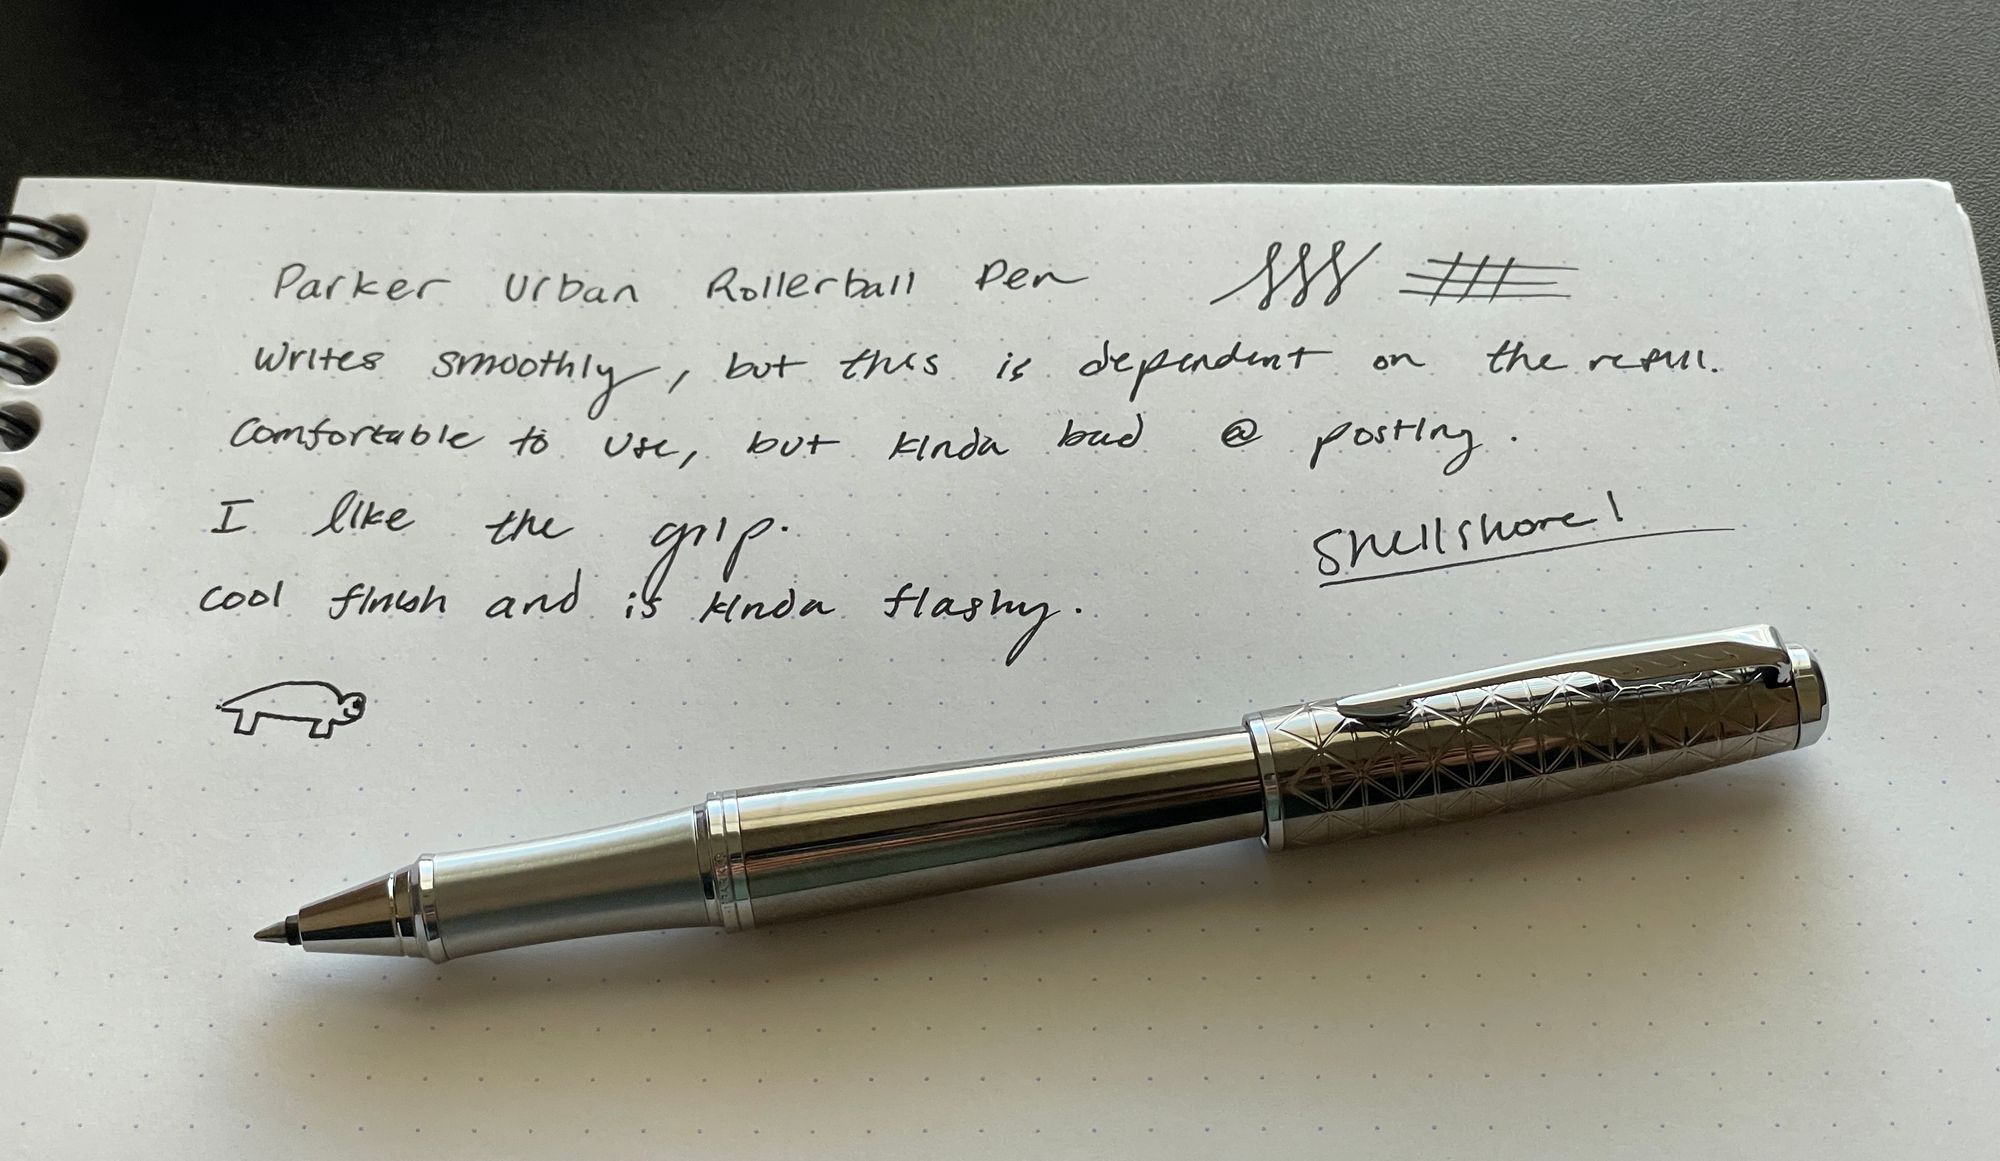 Parker Urban Rollerball Pen
Writes smoothly, but this is dependent on the refill.
Comfortable to use, but kinda bad @ posting.
I like the grip.
Shellshore!
cool finish and is kinda flashy.
PARKER